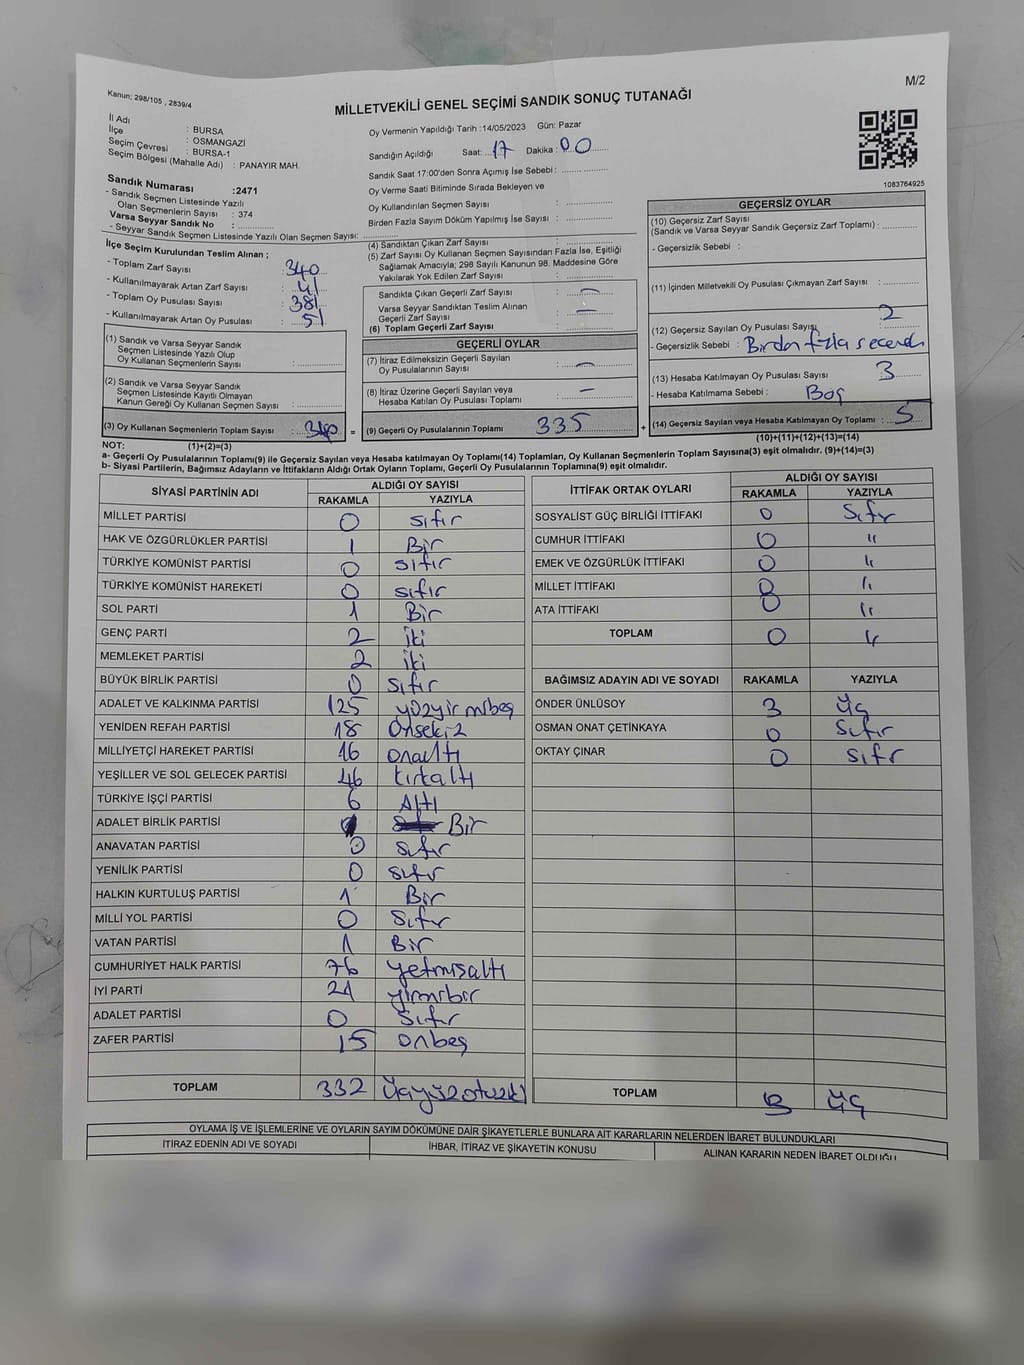 M/2
Kanun; 298/105 , 2839/4
MİLLETVEKİLİ GENEL SEÇİMİ SANDIK SONUÇ TUTANAĞI
İl Adı : BURSA
İlçe : OSMANGAZİ
Seçim Çevresi : BURSA-1
Seçim Bölgesi (Mahalle Adı) : PANAYIR MAH.
Sandık Numarası :2471
- Sandık Seçmen Listesinde Yazılı
Olan Seçmenlerin Sayısı : 374
Varsa Seyyar Sandık No :
- Seyyar Sandık Seçmen Listesinde Yazılı Olan Seçmen Sayısı:
Oy Vermenin Yapıldığı Tarih :14/05/2023 Gün: Pazar
Sandığın Açıldığı Saat: 17 Dakika: 00
Sandık Saat 17:00'den Sonra Açımış İse Sebebi :
Oy Verme Saati Bitiminde Sırada Bekleyen ve
Oy Kullandırılan Seçmen Sayısı :
Birden Fazla Sayım Döküm Yapılmış İse Sayısı :
1083764925
İlçe Seçim Kurulundan Teslim Alınan ;
- Toplam Zarf Sayısı : 340
- Kullanılmayarak Artan Zarf Sayısı : 41
- Toplam Oy Pusulası Sayısı : 381
- Kullanılmayarak Artan Oy Pusulası : 51
(1) Sandık ve Varsa Seyyar Sandık
Seçmen Listesinde Yazılı Olup
Oy Kullanan Seçmenlerin Sayısı :
(2) Sandık ve Varsa Seyyar Sandık
Seçmen Listesinde Kayıtlı Olmayan
Kanun Gereği Oy Kullanan Seçmen Sayısı :
(3) Oy Kullanan Seçmenlerin Toplam Sayısı : 340 =
(4) Sandıktan Çıkan Zarf Sayısı :
(5) Zarf Sayısı Oy Kullanan Seçmen Sayısından Fazla İse, Eşitliği
Sağlamak Amacıyla; 298 Sayılı Kanunun 98. Maddesine Göre
Yakılarak Yok Edilen Zarf Sayısı :
Sandıkta Çıkan Geçerli Zarf Sayısı : —
Varsa Seyyar Sandıktan Teslim Alınan
Geçerli Zarf Sayısı : —
(6) Toplam Geçerli Zarf Sayısı :
GEÇERLİ OYLAR
(7) İtiraz Edilmeksizin Geçerli Sayılan
Oy Pusulasının Sayısı : —
(8) İtiraz Üzerine Geçerli Sayılan veya
Hesaba Katılan Oy Pusulası Toplamı : —
(9) Geçerli Oy Pusulalarının Toplamı : 335 +
GEÇERSİZ OYLAR
(10) Geçersiz Zarf Sayısı
(Sandık ve Varsa Seyyar Sandık Geçersiz Zarf Toplamı) :
- Geçersizlik Sebebi :
(11) İçinden Milletvekili Oy Pusulası Çıkmayan Zarf Sayısı :
(12) Geçersiz Sayılan Oy Pusulası Sayısı : 2
- Geçersizlik Sebebi : Birden fazla secenek
(13) Hesaba Katılmayan Oy Pusulası Sayısı : 3
- Hesaba Katılmama Sebebi : Boş
(14) Geçersiz Sayılan veya Hesaba Katılmayan Oy Toplamı : 5
NOT: (1)+(2)=(3) (10)+(11)+(12)+(13)=(14)
a- Geçerli Oy Pusulalarının Toplamı(9) ile Geçersiz Sayılan veya Hesaba katılmayan Oy Toplamı(14) Toplamları, Oy Kullanan Seçmenlerin Toplam Sayısına(3) eşit olmalıdır. (9)+(14)=(3)
b- Siyasi Partilerin, Bağımsız Adayların ve İttifakların Aldığı Ortak Oyların Toplamı, Geçerli Oy Pusulalarının Toplamına(9) eşit olmalıdır.
SİYASİ PARTİNİN ADI ALDIĞI OY SAYISI
RAKAMLA YAZIYLA
MİLLET PARTİSİ 0 sıfır
HAK VE ÖZGÜRLÜKLER PARTİSİ 1 Bir
TÜRKİYE KOMÜNİST PARTİSİ 0 sıfır
TÜRKİYE KOMÜNİST HAREKETİ 0 sıfır
SOL PARTİ 1 Bir
GENÇ PARTİ 2 iki
MEMLEKET PARTİSİ 2 iki
BÜYÜK BİRLİK PARTİSİ 0 sıfır
ADALET VE KALKINMA PARTİSİ 125 yüzyirmibeş
YENİDEN REFAH PARTİSİ 18 Onsekiz
MİLLİYETÇİ HAREKET PARTİSİ 16 onaltı
YEŞİLLER VE SOL GELECEK PARTİSİ 46 kırkaltı
TÜRKİYE İŞÇİ PARTİSİ 6 Altı
ADALET BİRLİK PARTİSİ 1 Bir
ANAVATAN PARTİSİ 0 sıfır
YENİLİK PARTİSİ 0 sıfır
HALKIN KURTULUŞ PARTİSİ 1 Bir
MİLLİ YOL PARTİSİ 0 Sıfır
VATAN PARTİSİ 1 Bir
CUMHURİYET HALK PARTİSİ 76 yetmişaltı
İYİ PARTİ 21 yirmibir
ADALET PARTİSİ 0 Sıfır
ZAFER PARTİSİ 15 onbeş
TOPLAM 332 üçyüzotuziki
İTTİFAK ORTAK OYLARI ALDIĞI OY SAYISI
RAKAMLA YAZIYLA
SOSYALİST GÜÇ BİRLİĞİ İTTİFAKI 0 Sıfır
CUMHUR İTTİFAKI 0 "
EMEK VE ÖZGÜRLÜK İTTİFAKI 0 "
MİLLET İTTİFAKI 0 "
ATA İTTİFAKI 0 "
TOPLAM 0 "
BAĞIMSIZ ADAYIN ADI VE SOYADI RAKAMLA YAZIYLA
ÖNDER ÜNLÜSOY 3 Üç
OSMAN ONAT ÇETİNKAYA 0 Sıfır
OKTAY ÇINAR 0 Sıfır
TOPLAM 3 üç
OYLAMA İŞ VE İŞLEMLERİNE VE OYLARIN SAYIM DÖKÜMÜNE DAİR ŞİKAYETLERLE BUNLARA AİT KARARLARIN NELERDEN İBARET BULUNDUKLARI
İTİRAZ EDENİN ADI VE SOYADI İHBAR, İTİRAZ VE ŞİKAYETİN KONUSU ALINAN KARARIN NEDEN İBARET OLDUĞU